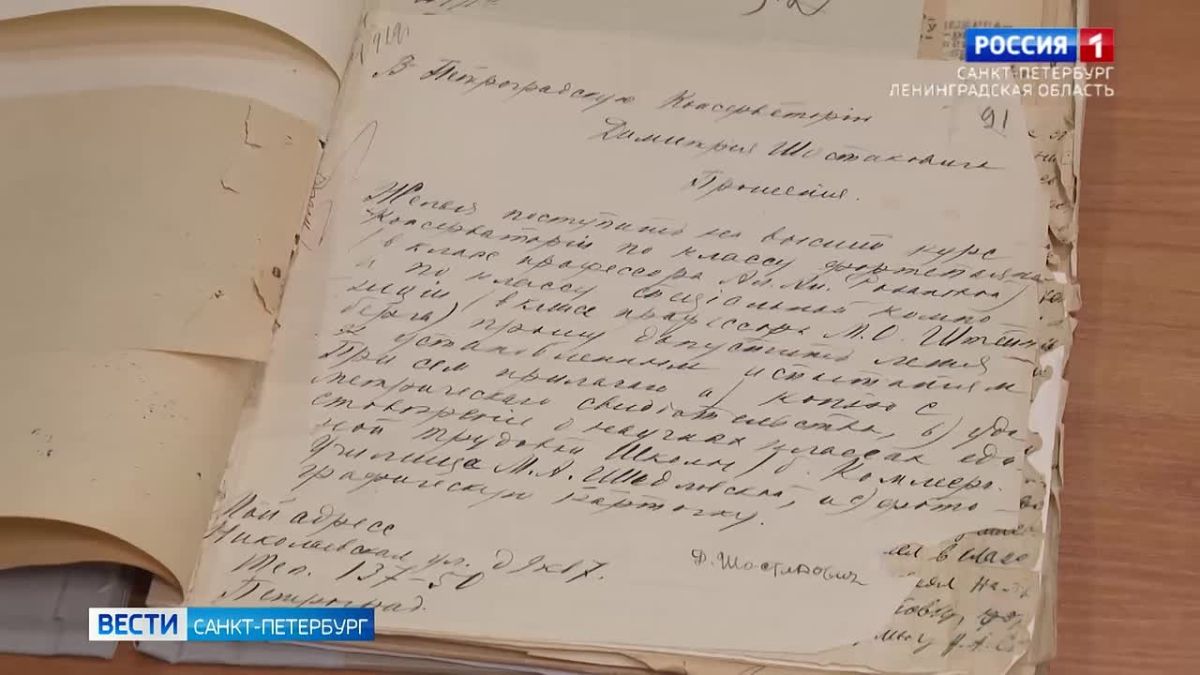 РОССИЯ 1
САНКТ-ПЕТЕРБУРГ
ЛЕНИНГРАДСКАЯ ОБЛАСТЬ
91
В Петроградскую Консерваторiю
Димитрия Шостаковича
Прошенiя.
Желая поступить на высшiй курс
Консерваторiи по классу фортепиано
(в класс профессора
и по классу спецiальной компо
зицiи (в класс профессора М.О. Штейн
берга) прошу допустить меня
к установленным испытанiям
При сем прилагаю а) копiю с
метрическаго свидетельства, в) удо
стоверенiе о научных классах един
ной трудовой Школы (б. Коммерч.
Училища М.А. Шидловской, и с) фото
графическую карточку.
Мой адресс
Николаевская ул. д 9 кв 7.
Тел. 137-50
Петроград.
Д. Шостакович
ВЕСТИ САНКТ-ПЕТЕРБУРГ